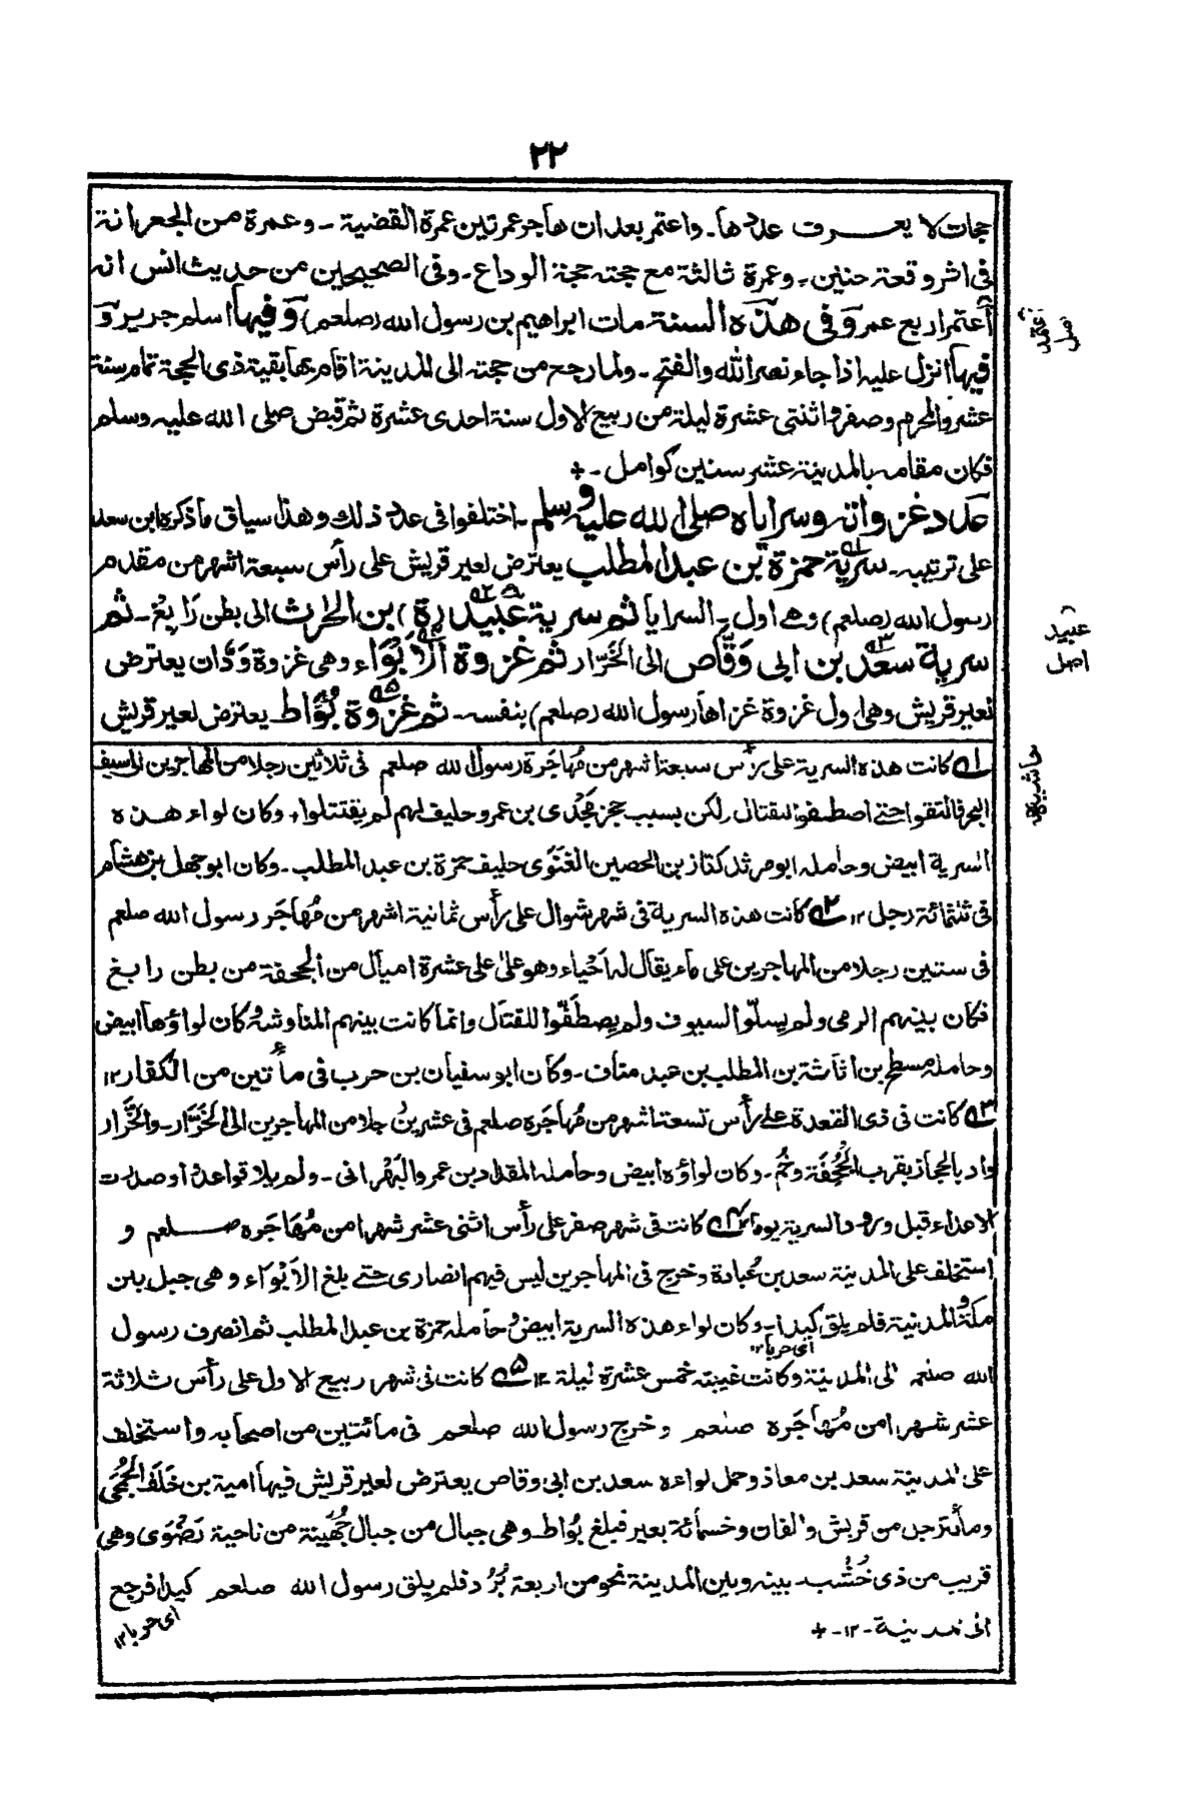 ٢٢
حجات لا يعرف عددها ـ واعتمر بعد ان هاجر عمرتين عمرة القضية ـ وعمرة من الجعرانة
فى اثر وقعة حنين ـ وعمرة ثالثة مع حجته حجة الوداع ـ وفى الصحيحين من حديث انس انه
اعتمر اربع عمر وفى هذه السنة مات ابراهيم بن رسول الله (صلعم) وفيها اسلم جرير و
فيها انزل عليه اذا جاء نصر الله والفتح ـ ولما رجع من حجته الى المدينة اقام بها بقية ذى الحجة تمام سنة
عشر والمحرم وصفر واثنتى عشرة ليلة من ربيع الاول سنة احدى عشرة ثم قبض صلى الله عليه وسلم
فكان مقامه بالمدينة عشر سنين كوامل ـ +
عدد غزواته وسراياه صلى الله عليه وسلم ـ اختلفوا فى عدد ذلك وهذا سياق ما ذكره ابن سعد
على ترتيبه ـ سرية ١ حمزة بن عبد المطلب يعترض لعير قريش على رأس سبعة اشهر من مقدم
رسول الله (صلعم) وهى اول ـ السرايا ثم سرية ٢ عبيد (ة) بن الحارث الى بطن رَابِغْ ـ ثم
سرية ٣ سعد بن ابى وَقَّاص الى الخَرَّار ثم غزوة ٤ الْاَبْوَاء وهى غزوة وَدَّان يعترض
لعير قريش وهى اول غزوة غزاها رسول الله (صلعم) بنفسه ـ ثم غزوة ٥ بُوَاط يعترض لعير قريش
اعتمد
اصل
عبيد
اصل
حاشيه
١ كانت هذه السرية على رأس سبعة اشهر من مُهاجَرة رسول الله صلعم فى ثلاثين رجلا من المهاجرين الى سيف
البحر فالتقوا حتى اصطفوا للقتال ولكن بسبب حجز مَجْدى بن عمرو حليف لهم لم يقتتلوا، وكان لواء هذه
السرية ابيض وحامله ابو مرثد كناز بن الحصين الغَنَوى حليف حمزة بن عبد المطلب ـ وكان ابو جهل بن هشام
فى ثلثمائة رجل ١٢ ٢ كانت هذه السرية فى شهر شوال على رأس ثمانية اشهر من مُهاجَر رسول الله صلعم
فى ستين رجلا من المهاجرين على ماء يقال له اَحْيَاء وهو على على عشرة اميال من الجحفة من بطن رابغ
فكان بينهم الرمى ولم يسلّوا السيوف ولم يصطَفّوا للقتال وانما كانت بينهم المناوشة كان لواؤها ابيض
وحامله مسطح بن اثاثة بن المطلب بن عبد مناف ـ وكان ابو سفيان بن حرب فى مأتين من الكفار ١٢
٣ كانت فى ذى القعدة على رأس تسعة اشهر من مُهاجَره صلعم فى عشرين رجلا من المهاجرين الى الخَرَّار ـ والخَرَّار
واد بالحجاز بقرب الجُحْفَة وخُم ـ وكان لواؤه ابيض وحامله المقداد بن عمرو البَهْرانى ـ ولم يلاقوا عدوا وصدرت
الاعداء قبل ورود السرية بيوم ٤ كانت فى شهر صفر على رأس اثنى عشر شهرا من مُهاجَره صلعم و
استخلف على المدينة سعد بن عُبادة وخرج فى المهاجرين ليس فيهم انصارى حتى بلغ الاَبْوَاء وهى جبل بين
مكة والمدينة فلم يلق كيدا ـ وكان لواء هذه السرية ابيض وحامله حمزة بن عبد المطلب ثم انصرف رسول
اى حربا ١٢
الله صلعم الى المدينة وكانت غيبته خمس عشرة ليلة ١٢ ٥ كانت فى شهر ربيع الاول على رأس ثلاثة
عشر شهرا من مُهاجَره صلعم وخرج رسول الله صلعم فى مائتين من اصحابه واستخلف
على المدينة سعد بن معاذ وحمل لواءه سعد بن ابى وقاص يعترض لعير قريش فيها امية بن خَلَف الجُمَحى
ومائة رجل من قريش والفان وخمسمائة بعير فبلغ بُوَاط وهى جبال من جبال جُهَينة من ناحية رَضْوَى وهى
قريب من ذى خُشُب بينه وبين المدينة نحو من اربعة بُرُد فلم يلق رسول الله صلعم كيدا فرجع
اى حربا ١٢
الى المدينة ـ ١٢ ـ +